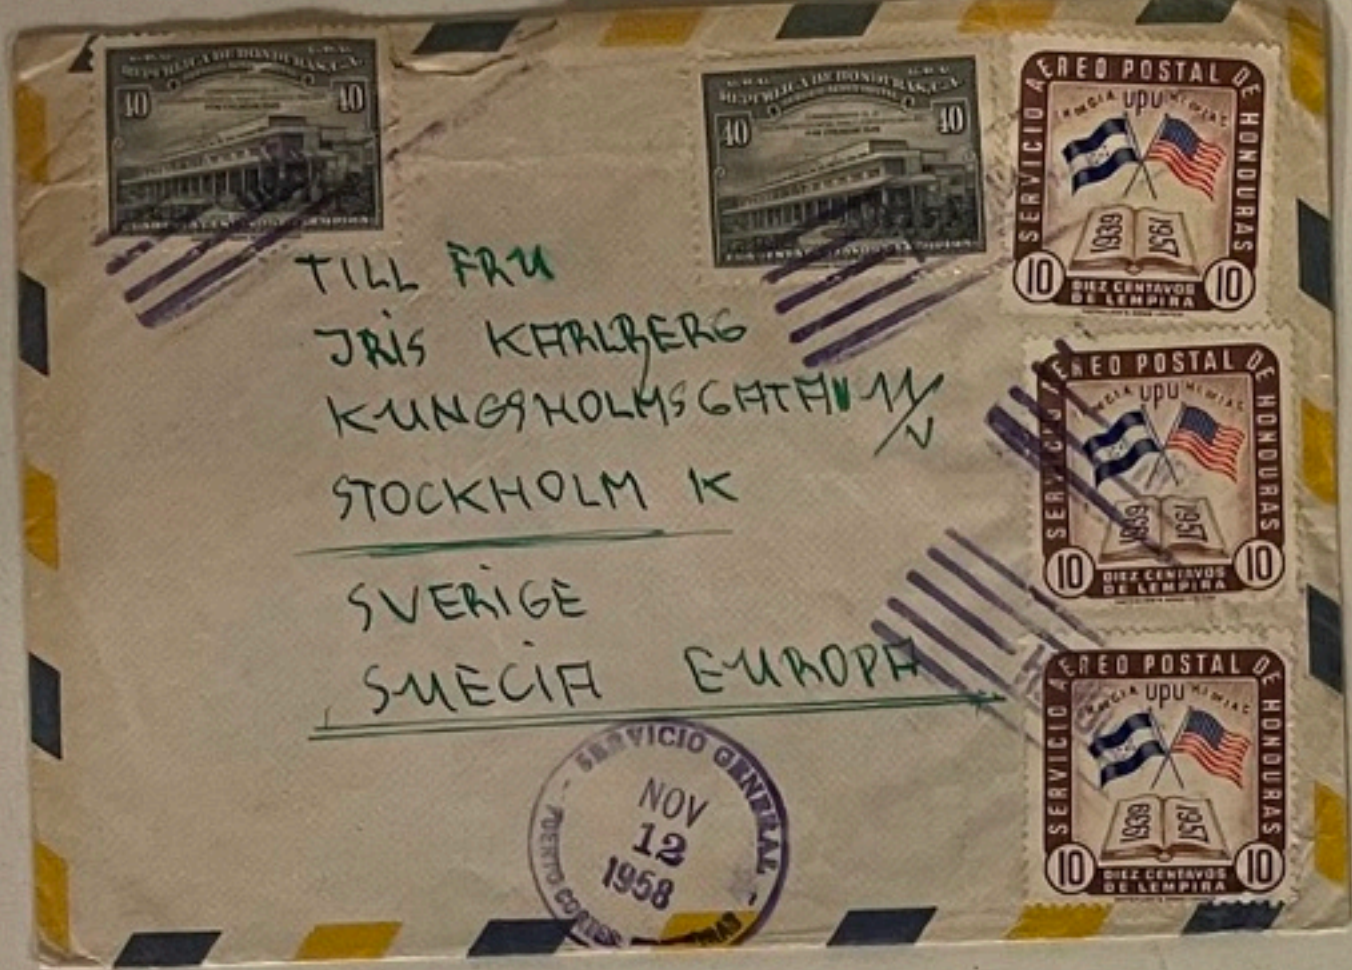 REPUBLICA DE HONDURAS, C.A.
40 40
REPUBLICA DE HONDURAS, C.A.
40 40
SERVICIO AEREO POSTAL DE HONDURAS
UPU
1939 1957
10 10
DIEZ CENTAVOS
DE LEMPIRA
SERVICIO AEREO POSTAL DE HONDURAS
UPU
1939 1957
10 10
DIEZ CENTAVOS
DE LEMPIRA
SERVICIO AEREO POSTAL DE HONDURAS
UPU
1939 1957
10 10
DIEZ CENTAVOS
DE LEMPIRA
TILL FRU
IRIS KARLBERG
KUNGSHOLMSGATAN 11/V
STOCKHOLM K
SVERIGE
SUECIA EUROPA
SERVICIO GENERAL
NOV
12
1958
PUERTO CORTES